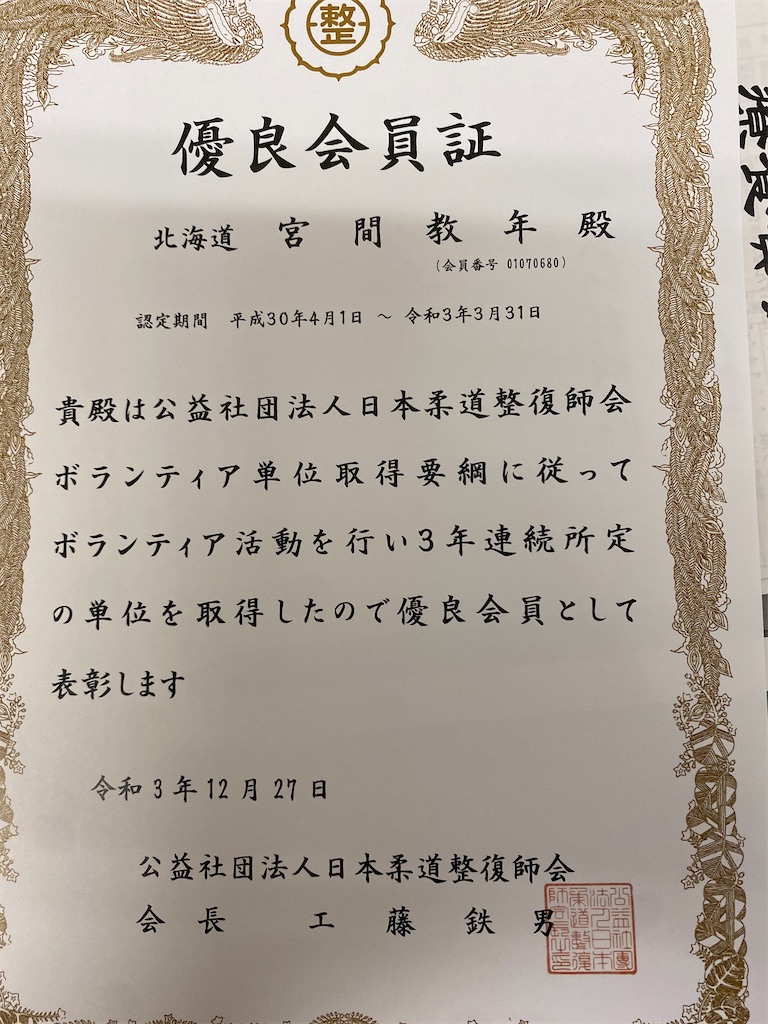 整
優良会員証
北海道 宮間教年 殿
(会員番号 01070680)
認定期間 平成30年4月1日 ～ 令和3年3月31日
貴殿は公益社団法人日本柔道整復師会
ボランティア単位取得要綱に従って
ボランティア活動を行い3年連続所定
の単位を取得したので優良会員として
表彰します
令和3年12月27日
公益社団法人日本柔道整復師会
会長 工藤鉄男